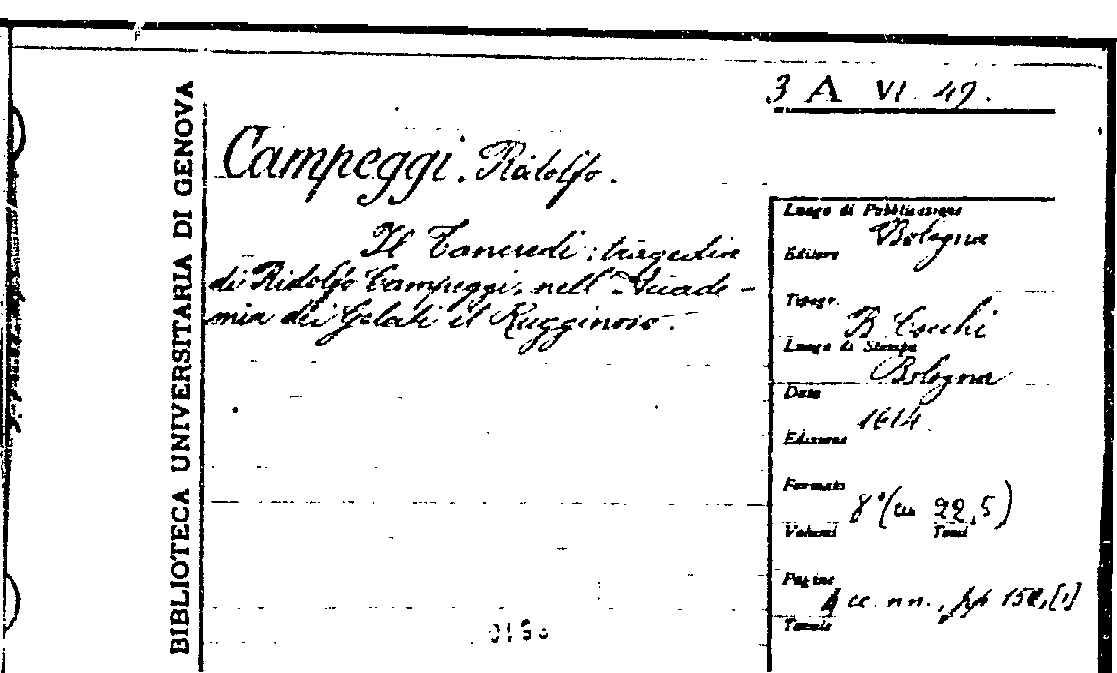 3 A VI. 49.
BIBLIOTECA UNIVERSITARIA DI GENOVA
Campeggi. Ridolfo.
Il Tancredi: tragedia
di Ridolfo Campeggi, nell'Accade-
mia dei Gelati il Rugginoso.
Luogo di Pubblicazione
Bologna
Editore
Tipogr.
B. Cocchi
Luogo di Stampa
Bologna
Data
1614.
Edizione
Formato
8° (cm 22,5)
Volumi Tomi
Pagine
4 cc. nn., pp 152, [1]
Tavole